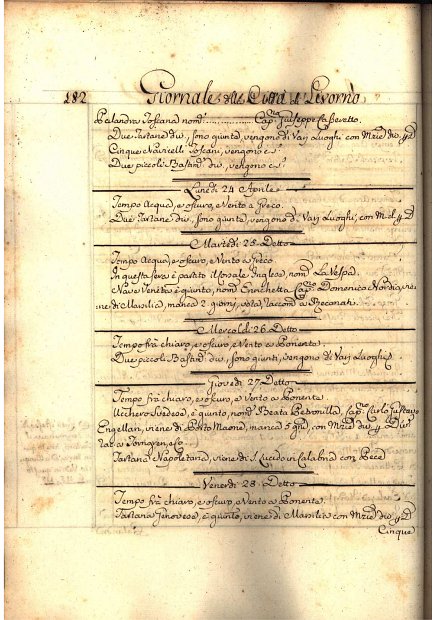 182 Giornale della Città di Livorno
Pelandra Toscana nom.ª Cap.º Giuseppe Casseretto.
Due Tartane div., sono giunte, vengono di Varj Luoghi con Mrzie div. p D.
Cinque Navicelli Toscani, vengono c.s.
Due piccoli Bastim.ti div., vengono c.s.
Lunedì 24 Aprile
Tempo Acqua, e oscuro, e Vento a Greco.
Due Tartane div., sono giunte, vengono di Varj Luoghi, con M. d. p D.
Martedì 25 Detto
Tempo Acqua, e oscuro, e Vento a Greco
In questa sera è partito il Inglese, nom.º La Vespa.
Nave Veneta è giunta, nom. Enrichetta Cap.º Domenico vie-
ne di Marsilia, manca 2. giorni, vota, raccom. a Recanati.
Mercoldì 26 Detto
Tempo frà chiaro, e oscuro, e Vento a Ponente.
Due piccoli Bastim.ti div., sono giunti, vengono di Varj Luoghi
Giovedì 27 Detto
Tempo frà chiaro, e oscuro, e Vento a Ponente.
Ucchero Svedese, è giunto, nom.º Beata Petronilla, Cap.º Carlo Gustavo
Engellan, viene di Porto Maone, manca 5 gni, con Mrzie div. p
rac. a
Tartana Napoletana, viene di S. Lucido in Calabria con
Venerdì 28 Detto
Tempo frà chiaro, e oscuro, e Vento a Ponente
Tartana Genovese, è giunta, viene di Marsilia con Mrzie div. p D.
Cinque